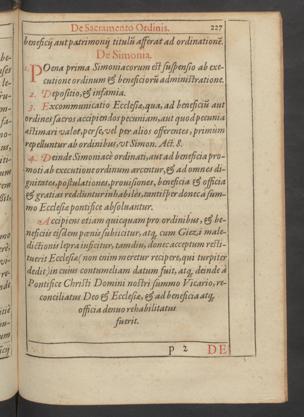 De Sacramento Ordinis. 227
beneficij aut patrimonij titulũ afferat ad ordinationẽ.
De Simonia.
1. POena prima Simoniacorum est suspensio ab exe-
cutione ordinum & beneficiorũ administratione.
2. Depositio, & infamia.
3. Excommunicatio Ecclesiæ, qua, ad beneficiũ aut
ordines sacros accipiendos pecuniam, aut quod pecunia
æstimari valet, per se, vel per alios offerentes, primum
repelluntur ab ordinibus, vt Simon. Act. 8.
4. Deinde Simoniacè ordinati, aut ad beneficia pro-
moti ab executione ordinum arcentur, & ad omnes di-
gnitates, postulationes, prouisiones, beneficia & officia
& gratias redduntur inhabiles, nec nisi per
mo Ecclesiæ pontifice absoluantur.
Accipiens etiam quicquam pro ordinibus, & be-
neficiis eisdem pœnis subiicitur, atq, cum Giezi male-
dictionis lepra iuscitur, tamdiu, donec acceptum resti-
tuerit Ecclesiæ (non enim meretur recipere, qui turpiter
dedit) in cuius contumeliam datum fuit, atq, deinde à
Pontifice Christi Domini nostri summo Vicario, re-
conciliatus Deo & Ecclesiæ, & ad beneficia atq,
officia denuo rehabilitatus
fuerit.
p 2 DE